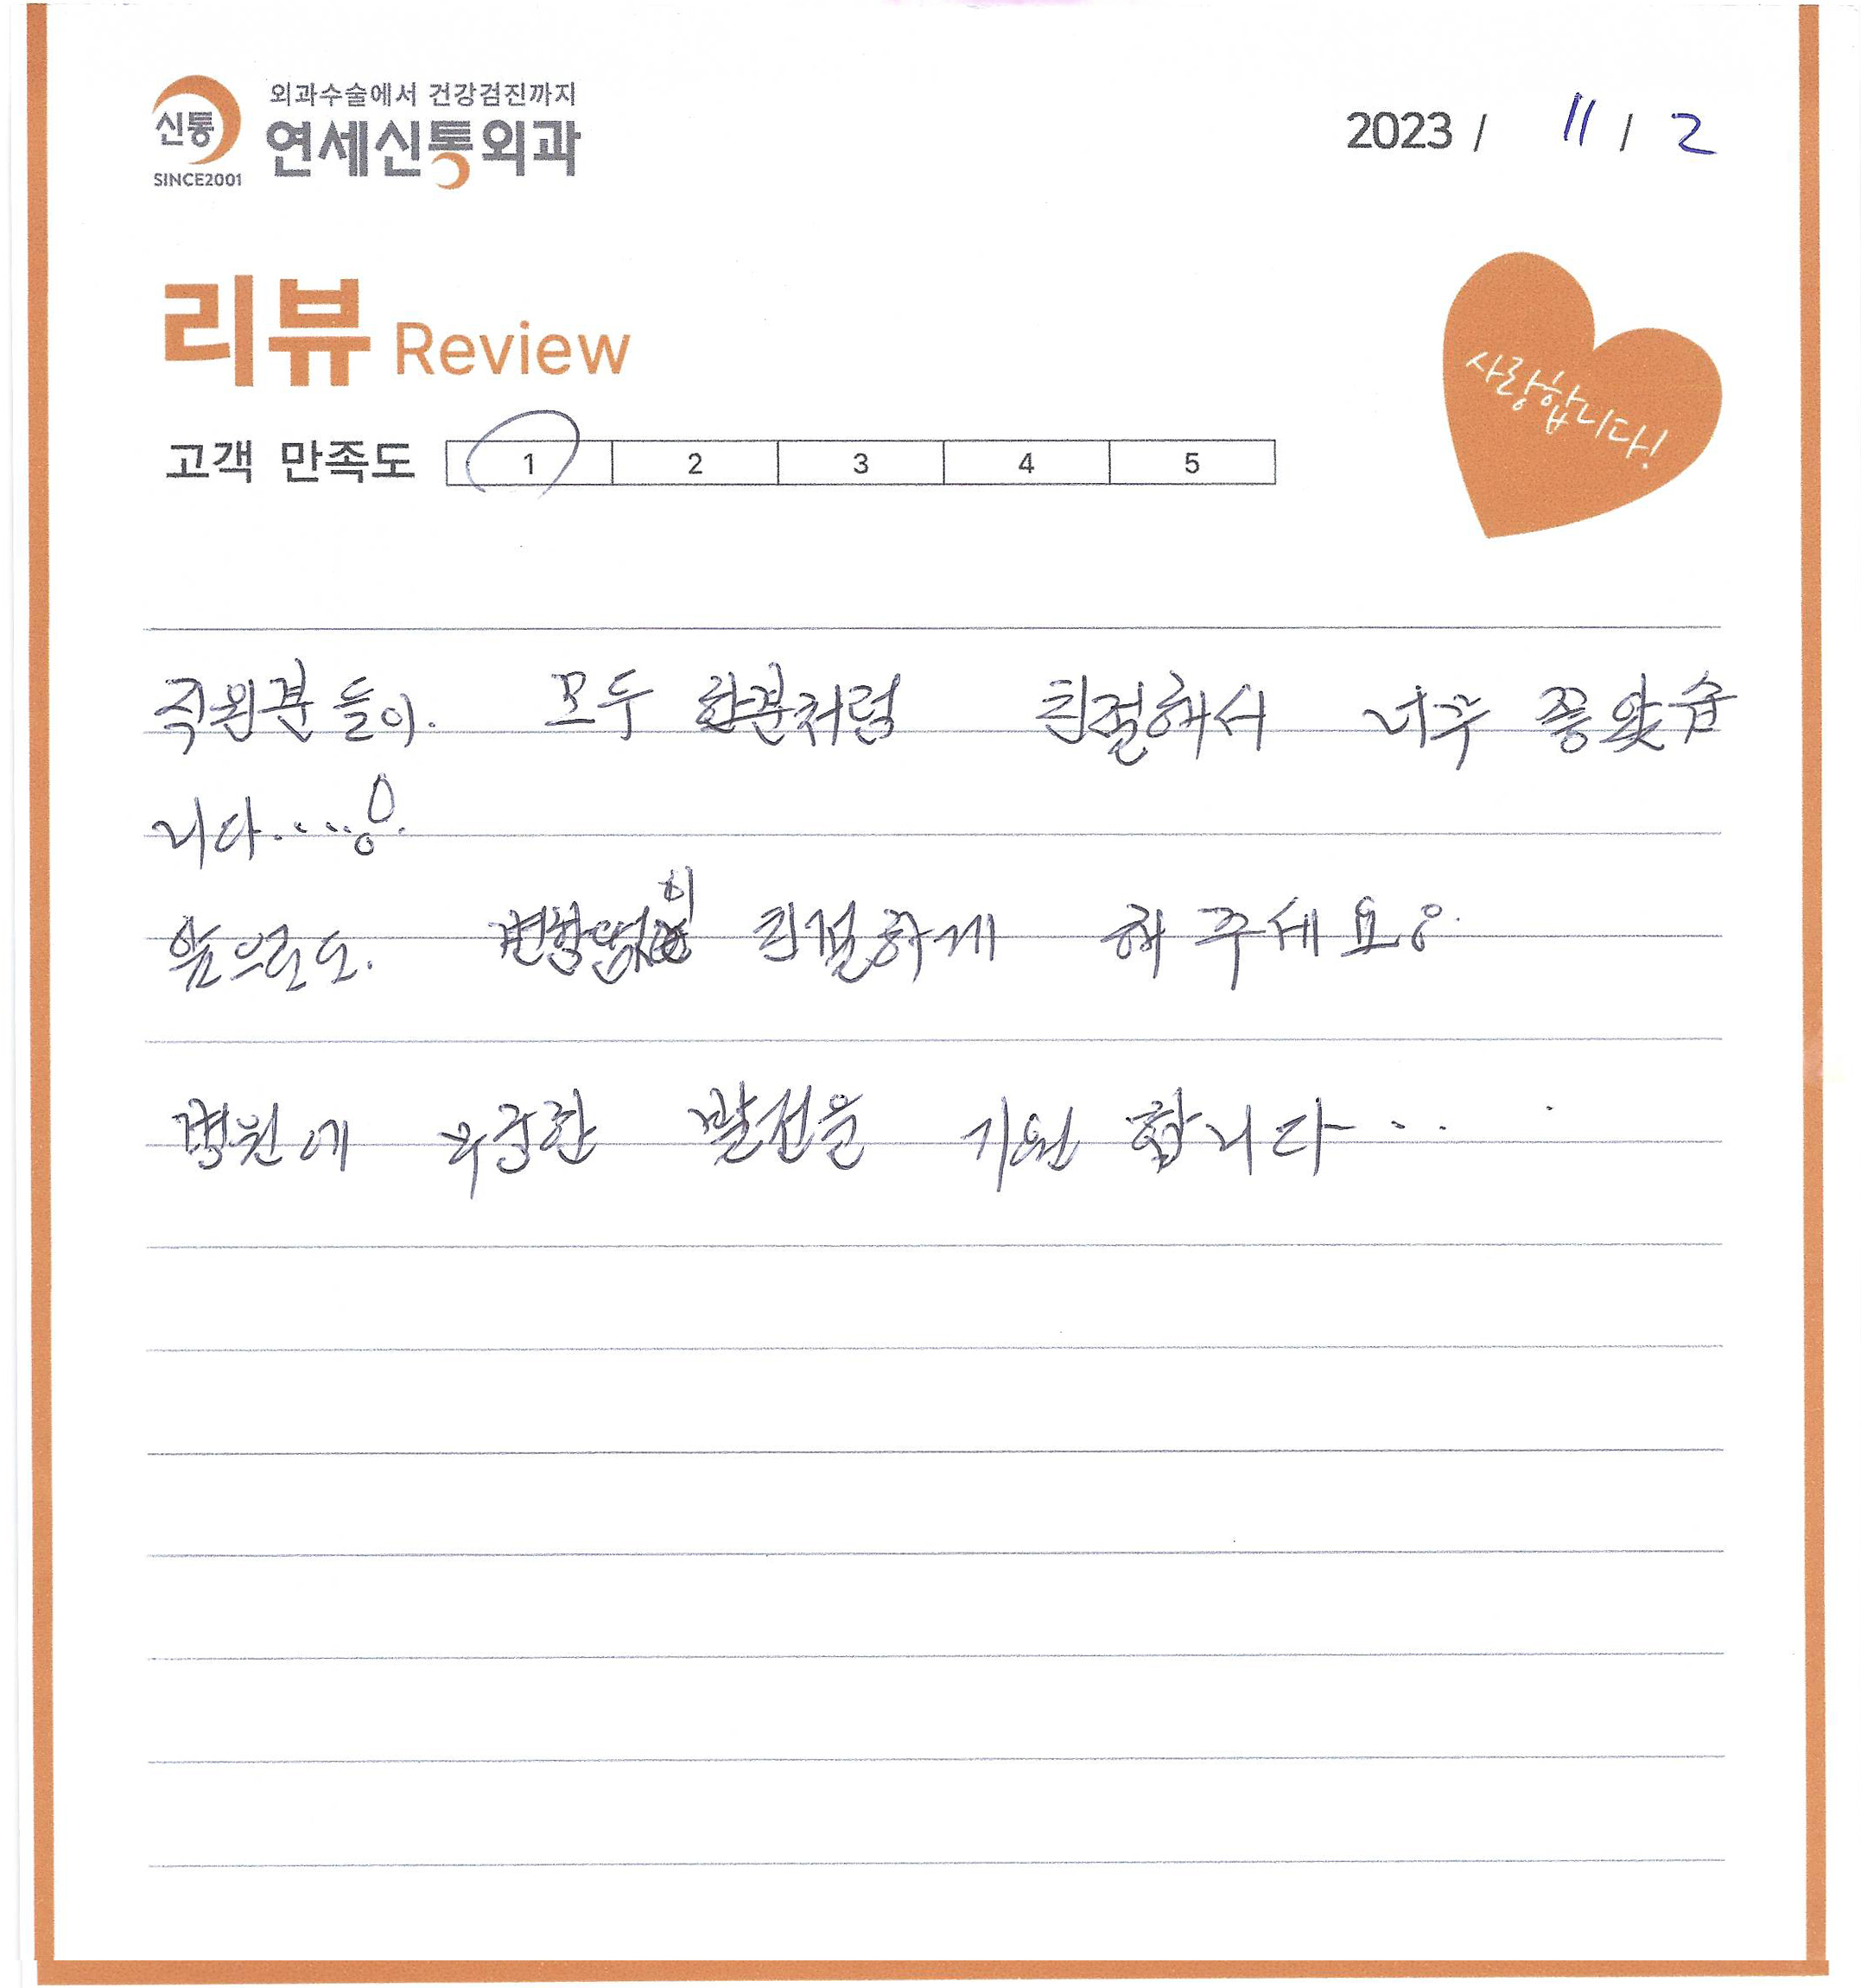 외과수술에서 건강검진까지
신통 연세신통외과
SINCE2001
2023 / 11 / 2
리뷰 Review
사랑합니다!
고객 만족도 1 2 3 4 5
직원분들이. 모두 한분처럼 친절해서 너무 좋았습
니다.....
앞으로도. 변함없이 친절하게 해주세요.
병원에 무궁한 발전을 기원 합니다...